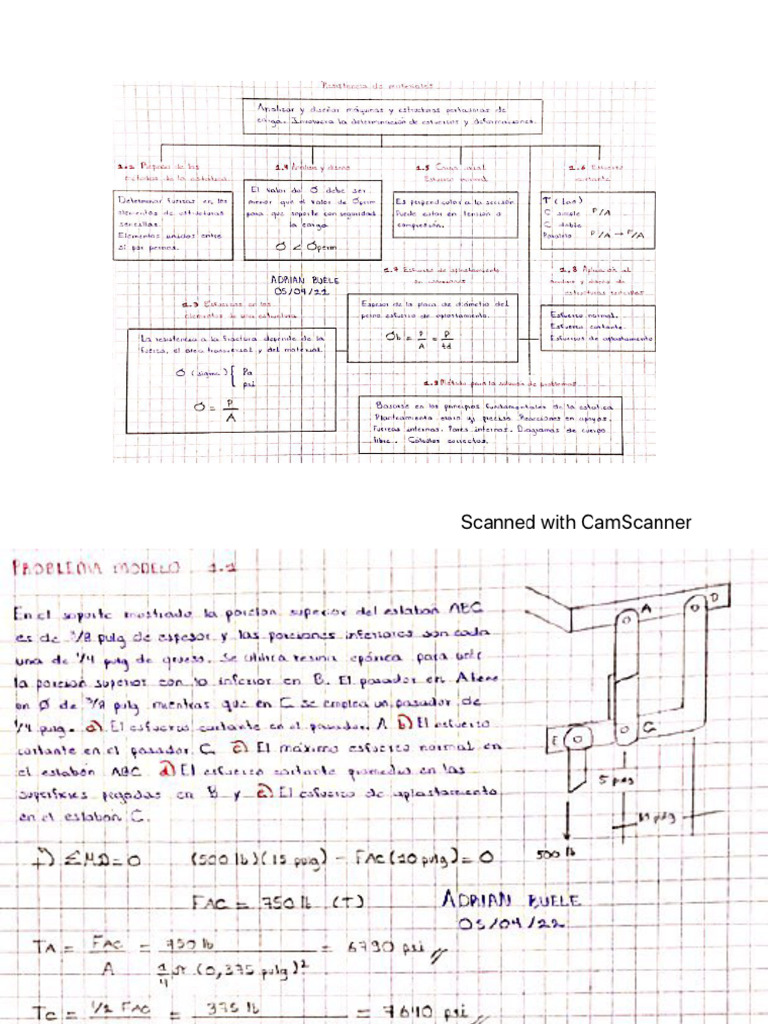 Resistencia de materiales
Analizar y diseñar máquinas y estructuras portadoras de
carga. Involucra la determinación de esfuerzos y deformaciones.
1.2 Repaso de los
métodos de la estática
Determinar fuerzas en los
elementos de estructuras
sencillas.
Elementos unidos entre
sí por pernos.
1.4 Análisis y diseño
El valor de σ debe ser
menor que el valor de σperm
para que soporte con seguridad
la carga
σ < σperm
1.5 Carga axial
Esfuerzo normal
Es perpendicular a la sección.
Puede estar en tensión o
compresión.
1.6 Esfuerzo
cortante
τ (tao)
C simple P/A
C doble
Paralelo P/A → F/A
ADRIAN BUELE
05/04/22
1.3 Esfuerzos en los
elementos de una estructura
La resistencia a la fractura depende de la
fuerza, el área transversal y del material.
σ (sigma) { Pa
psi
σ = P/A
1.7 Esfuerzo de aplastamiento
en conexiones
Espesor de la placa de diámetro del
perno esfuerzo de aplastamiento.
σb = P/A = P/td
1.8 Aplicación al
análisis y diseño de
estructuras sencillas
Esfuerzo normal.
Esfuerzo cortante.
Esfuerzos de aplastamiento
1.9 Método para la solución de problemas
Basarse en los principios fundamentales de la estática
Planteamiento claro y preciso. Reacciones en apoyos.
Fuerzas internas. Pares internos. Diagramas de cuerpo
libre. Cálculos correctos.
Scanned with CamScanner
PROBLEMA MODELO 1.1
En el soporte mostrado la porción superior del eslabón ABC
es de 3/8 pulg de espesor y las porciones inferiores son cada
una de 1/4 pulg de grueso. Se utiliza resina epóxica para unir
la porción superior con la inferior en B. El pasador en A tiene
un Ø de 3/8 pulg mientras que en C se emplea un pasador de
1/4 pulg. a) El esfuerzo cortante en el pasador A b) El esfuerzo
cortante en el pasador C. c) El máximo esfuerzo normal en
el eslabón ABC d) El esfuerzo cortante promedio en las
superficies pegadas en B y e) El esfuerzo de aplastamiento
en el eslabón C.
A
D
E
C
5 pulg
500 lb
ΣMD = 0 (500 lb)(15 pulg) - FAC(10 pulg) = 0
FAC = 750 lb (T)
ADRIAN BUELE
05/04/22
TA = FAC/A = 750 lb / 1/4 π (0,375 pulg)² = 6790 psi
TC = 1/2 FAC = 375 lb = 7640 psi